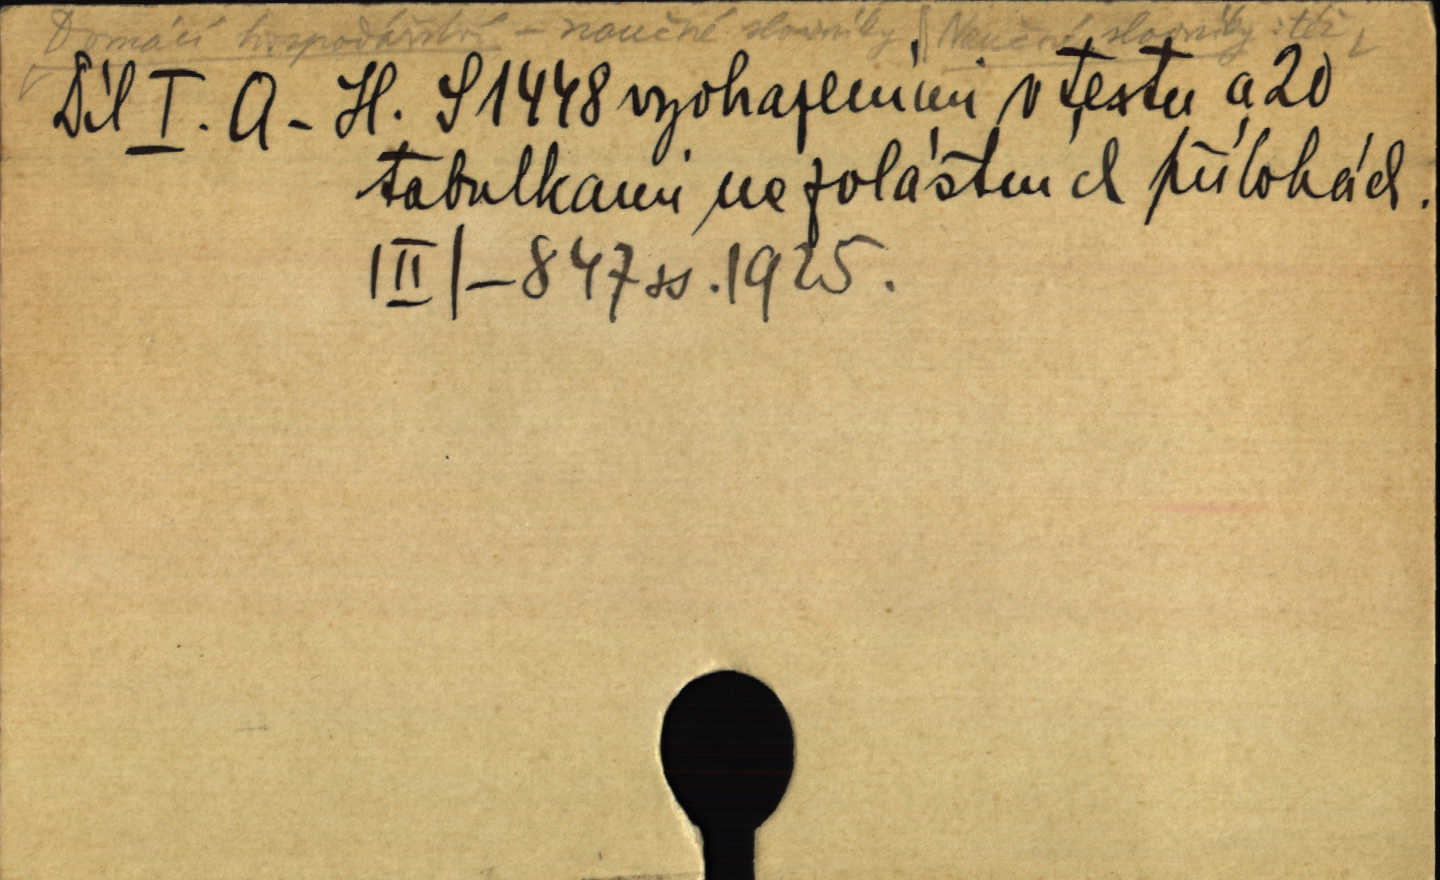 Domácí hospodářství - naučné slovníky | Naučné slovníky: též
Díl I. A - H. S 1448 vyobrazeními v textu a 20
tabulkami na zvláštních přílohách.
III/-847 ss. 1925.